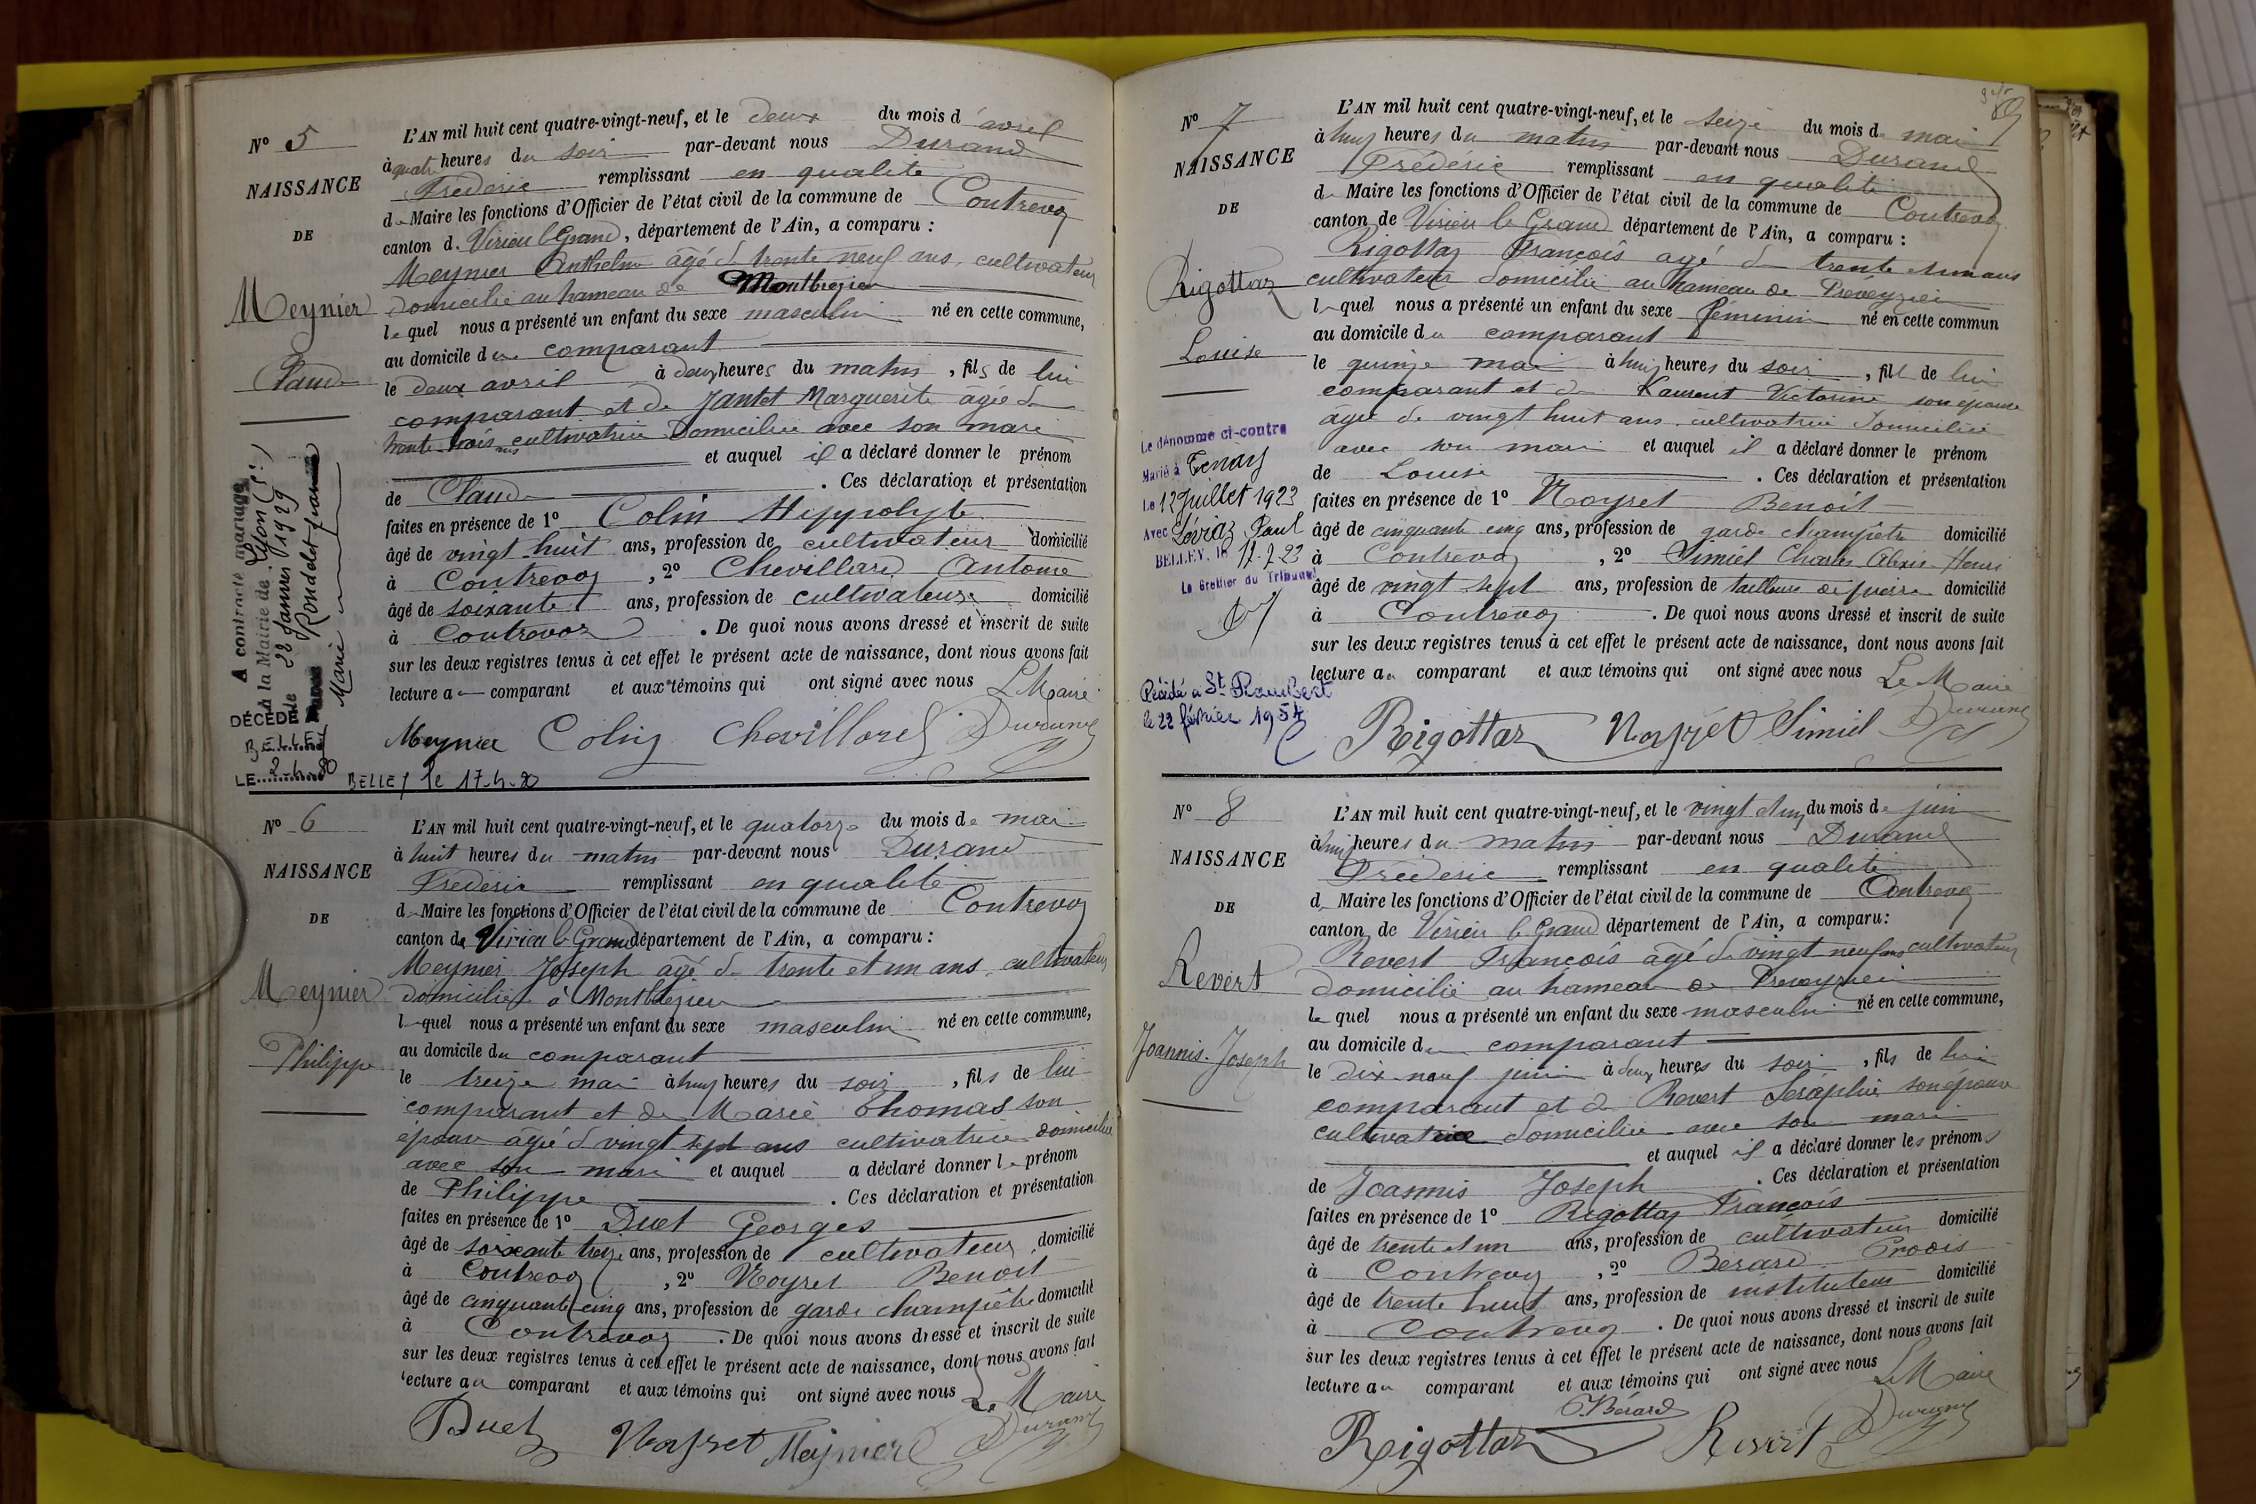 N° 5
NAISSANCE
DE
Meynier
Claude
A contracté mariage
à la Mairie de Lyon
le 22 Janvier 1929
Rondelet
Marie
DÉCÉDÉ
BELLEY
LE 2-4-80
BELLEY le 17-4-80
L'AN mil huit cent quatre-vingt-neuf, et le deux du mois d'avril
à quatre heures du soir par-devant nous Durand
Frédéric remplissant en qualité
de Maire les fonctions d'Officier de l'état civil de la commune de Contrevoz
canton de Virieu le Grand, département de l'Ain, a comparu :
Meynier Anthelme âgé de trente neuf ans, cultivateur
domicilié au hameau de Montbreyzieu
lequel nous a présenté un enfant du sexe masculin né en cette commune,
au domicile du comparant
le deux avril à deux heures du matin, fils de lui
comparant et de Jantet Marguerite âgée de
trente trois ans cultivatrice domiciliée avec son mari
et auquel il a déclaré donner le prénom
de Claude. Ces déclaration et présentation
faites en présence de 1° Colin Hippolyte
âgé de vingt huit ans, profession de cultivateur domicilié
à Contrevoz, 2° Chevillard Antoine
âgé de soixante ans, profession de cultivateur domicilié
à Contrevoz. De quoi nous avons dressé et inscrit de suite
sur les deux registres tenus à cet effet le présent acte de naissance, dont nous avons fait
lecture au comparant et aux témoins qui ont signé avec nous Le Maire
Meynier Colin Chevillard Durand
N° 6
NAISSANCE
DE
Meynier
Philippe
L'AN mil huit cent quatre-vingt-neuf, et le quatorze du mois de mai
à huit heures du matin par-devant nous Durand
Frédéric remplissant en qualité
de Maire les fonctions d'Officier de l'état civil de la commune de Contrevoz
canton de Virieu le Grand département de l'Ain, a comparu :
Meynier Joseph âgé de trente et un ans, cultivateur
domicilié à Montbreyzieu
lequel nous a présenté un enfant du sexe masculin né en cette commune,
au domicile du comparant
le treize mai à huit heures du soir, fils de lui
comparant et de Marie Thomas son
épouse âgée de vingt sept ans cultivatrice domiciliée
avec son mari et auquel a déclaré donner le prénom
de Philippe. Ces déclaration et présentation
faites en présence de 1° Duet Georges
âgé de soixante treize ans, profession de cultivateur domicilié
à Contrevoz, 2° Noyret Benoit
âgé de cinquante cinq ans, profession de garde champêtre domicilié
à Contrevoz. De quoi nous avons dressé et inscrit de suite
sur les deux registres tenus à cet effet le présent acte de naissance, dont nous avons fait
lecture au comparant et aux témoins qui ont signé avec nous Le Maire
Duet Noyret Meynier Durand
89
N° 7
NAISSANCE
DE
Rigottaz
Louise
Le dénommé ci-contre
Marié à Tenay
Le 12 Juillet 1923
Avec Paul
BELLEY, le 17-7-23
Le Greffier du Tribunal
Décédée à St Rambert
le 22 février 1954
L'AN mil huit cent quatre-vingt-neuf, et le seize du mois de mai
à huit heures du matin par-devant nous Durand
Frédéric remplissant en qualité
de Maire les fonctions d'Officier de l'état civil de la commune de Contrevoz
canton de Virieu le Grand département de l'Ain, a comparu :
Rigottaz François âgé de trente et un ans
cultivateur domicilié au hameau de Preveyzieu
lequel nous a présenté un enfant du sexe féminin né en cette commun
au domicile du comparant
le quinze mai à huit heures du soir, fille de lui
comparant et de Laurent Victorine son épouse
âgée de vingt huit ans cultivatrice domiciliée
avec son mari et auquel il a déclaré donner le prénom
de Louise. Ces déclaration et présentation
faites en présence de 1° Noyret Benoit
âgé de cinquante cinq ans, profession de garde champêtre domicilié
à Contrevoz, 2° Simiel Charles Alexis Henri
âgé de vingt sept ans, profession de tailleur de pierre domicilié
à Contrevoz. De quoi nous avons dressé et inscrit de suite
sur les deux registres tenus à cet effet le présent acte de naissance, dont nous avons fait
lecture au comparant et aux témoins qui ont signé avec nous Le Maire
Rigottaz Noyret Simiel Durand
N° 8
NAISSANCE
DE
Revert
Joannis Joseph
L'AN mil huit cent quatre-vingt-neuf, et le vingt et un du mois de juin
à huit heures du matin par-devant nous Durand
Frédéric remplissant en qualité
de Maire les fonctions d'Officier de l'état civil de la commune de Contrevoz
canton de Virieu le Grand département de l'Ain, a comparu :
Revert François âgé de vingt neuf ans cultivateur
domicilié au hameau de Preveyzieu
lequel nous a présenté un enfant du sexe masculin né en cette commune,
au domicile du comparant
le dix neuf juin à deux heures du soir, fils de lui
comparant et de Revert Séraphie son épouse
cultivatrice domiciliée avec son mari
et auquel il a déclaré donner les prénoms
de Joannis Joseph. Ces déclaration et présentation
faites en présence de 1° Rigottaz François
âgé de trente et un ans, profession de cultivateur domicilié
à Contrevoz, 2° Bérard
âgé de trente huit ans, profession de instituteur domicilié
à Contrevoz. De quoi nous avons dressé et inscrit de suite
sur les deux registres tenus à cet effet le présent acte de naissance, dont nous avons fait
lecture au comparant et aux témoins qui ont signé avec nous Le Maire
Bérard
Rigottaz Revert Durand